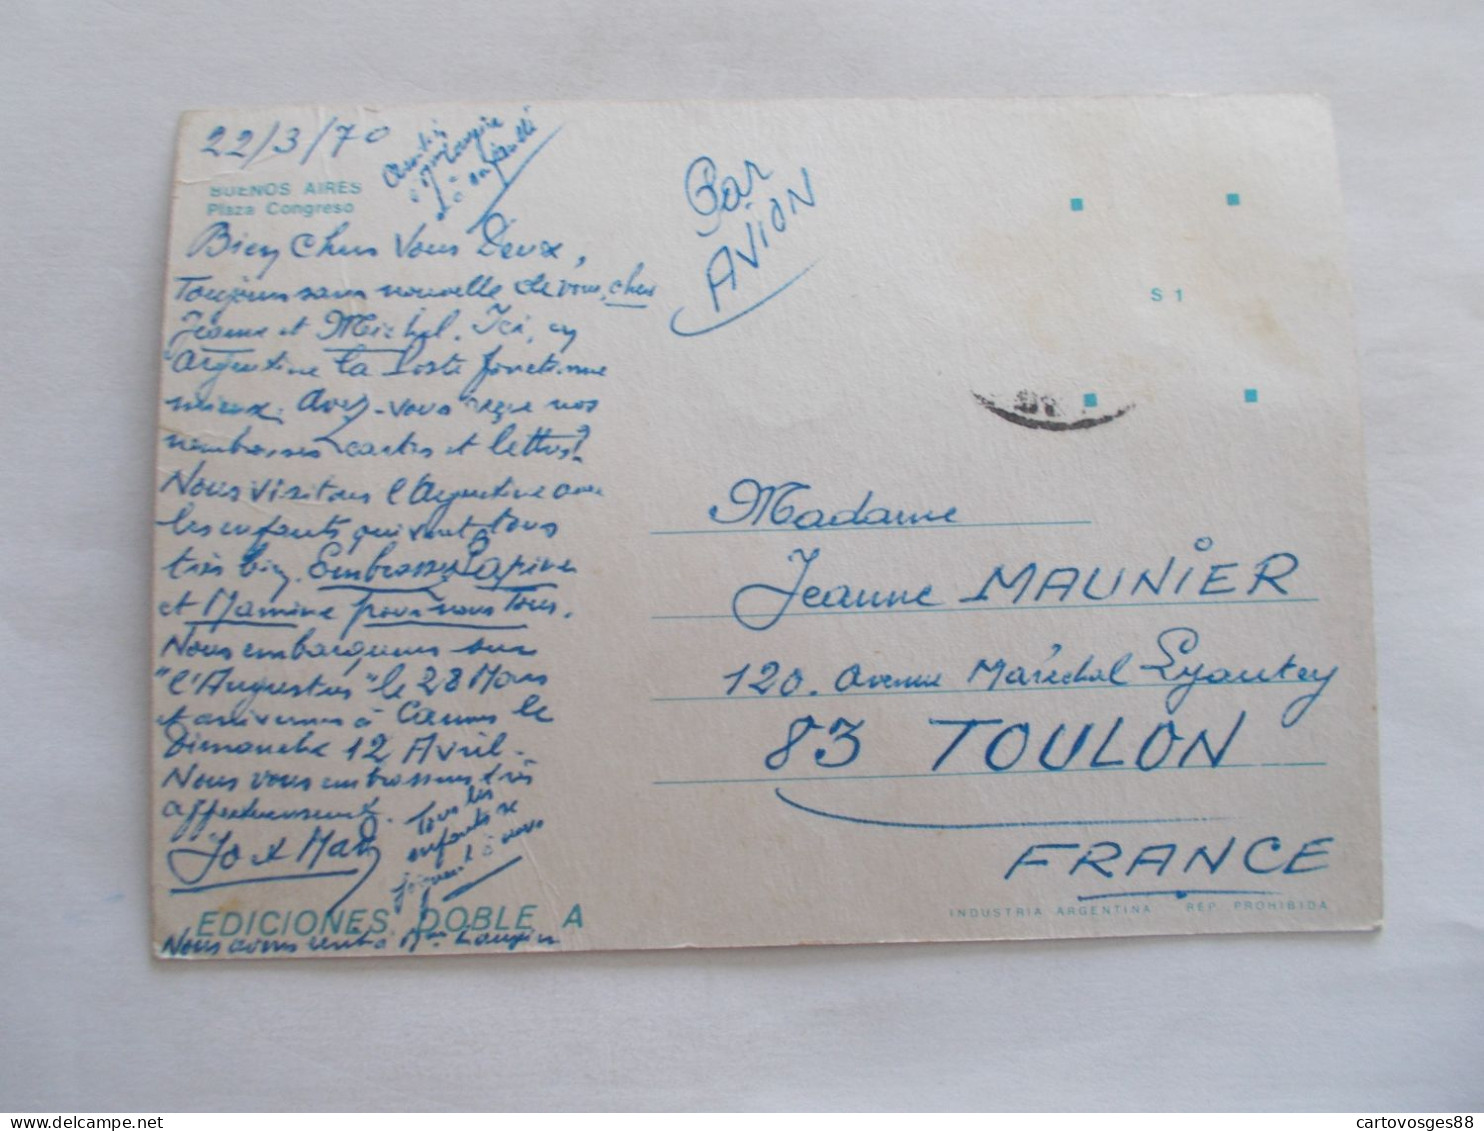 22/3/70
Amitiés
à Mme Laugier
BUENOS AIRES
Plaza Congreso
Bien chers Vous Deux,
Toujours sans nouvelle de vous, chers
Jeanne et Michel. Ici, en
Argentine la Poste fonctionne
mieux. Avez-vous reçu nos
nombreuses cartes et lettres?
Nous visitons l'Argentine avec
les enfants qui vont tous
très bien. Embrassez Papine
et Mamine pour nous Tous.
Nous embarquons sur
"l'Augustus" le 28 Mars
et arriverons à Cannes le
Dimanche 12 Avril.
Nous vous embrassons très
affectueusement.
Jo et Mady
Tous les
enfants se
joignent à nous
EDICIONES DOBLE A
Nous avons écrit à Mme Laugier
Par
AVION
S 1
Madame
Jeanne MAUNIER
120. Avenue Maréchal Lyautey
83 TOULON
FRANCE
INDUSTRIA ARGENTINA REP. PROHIBIDA
cartovosges88